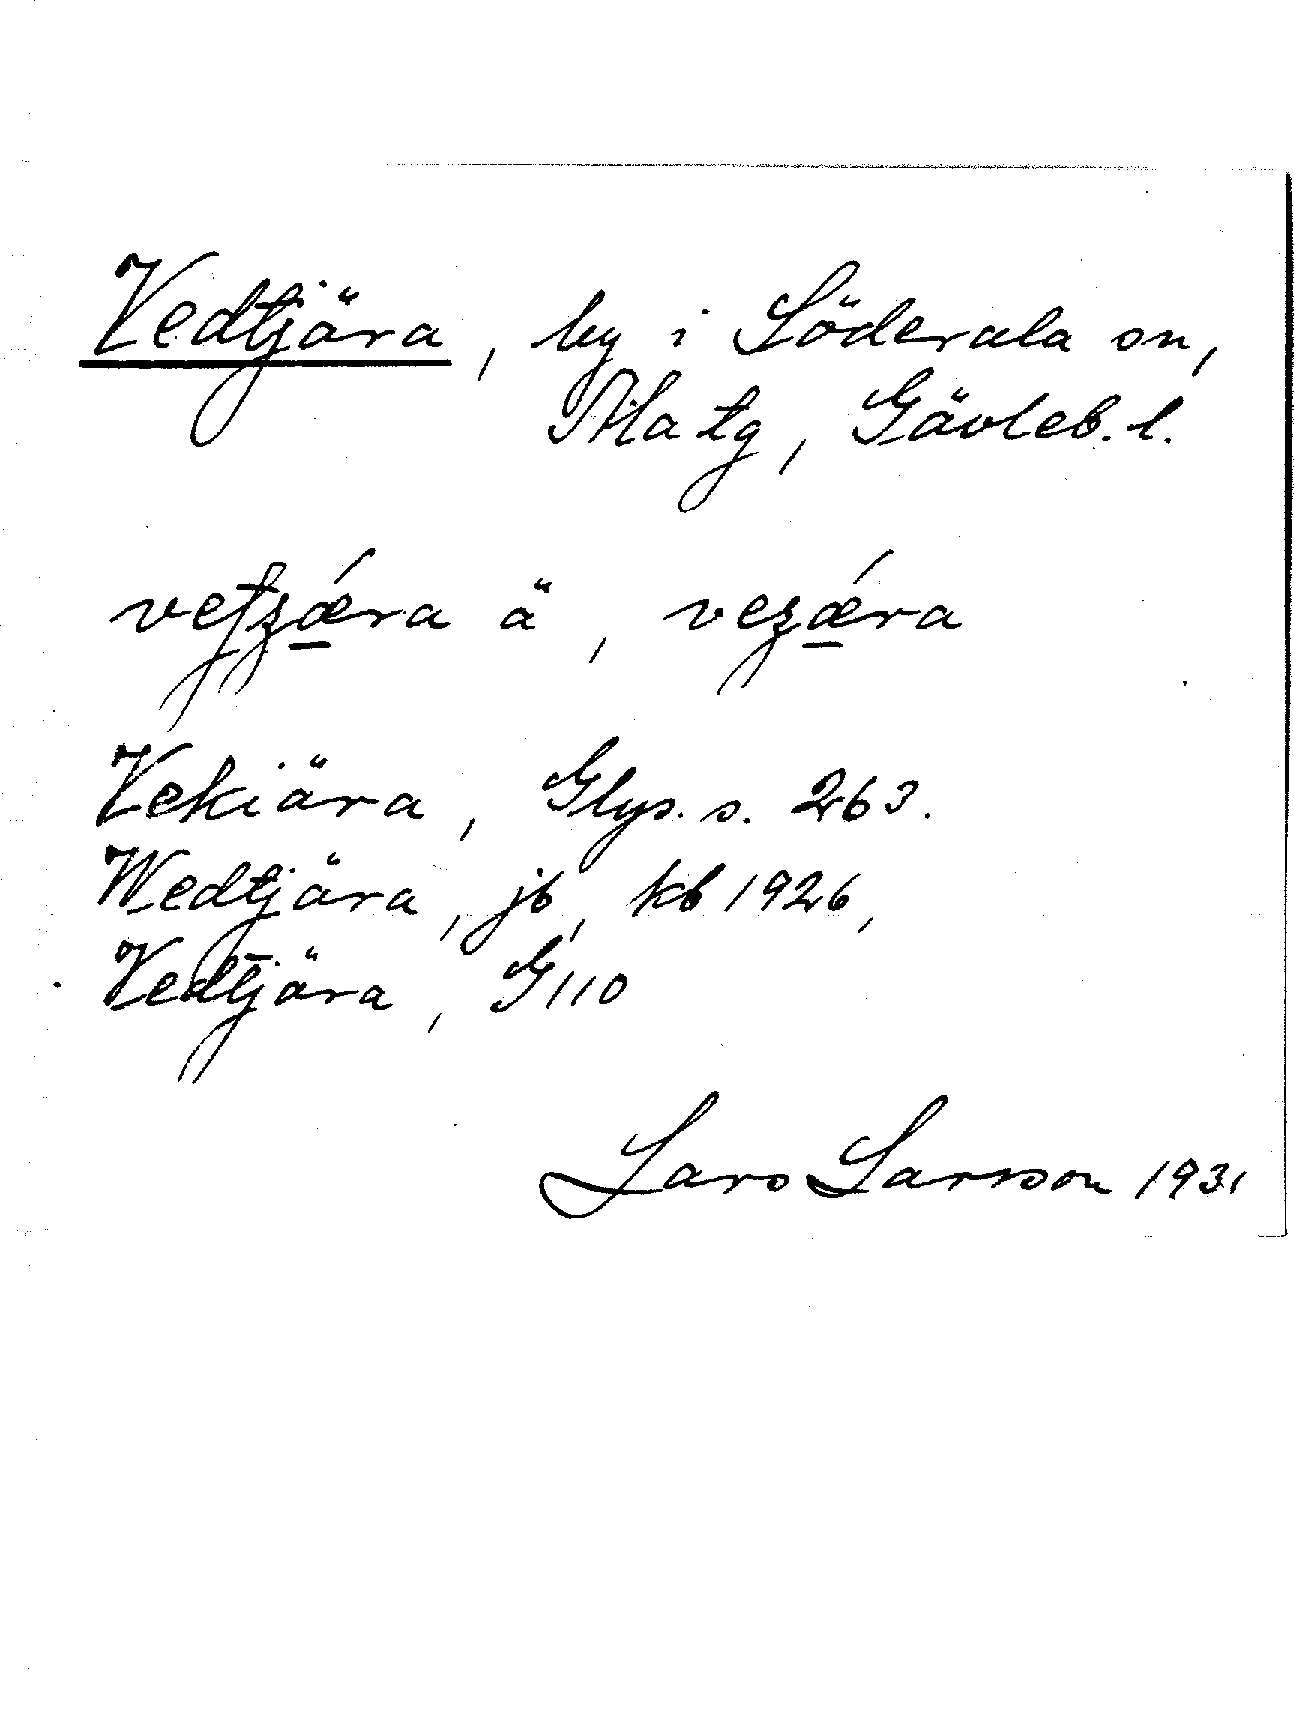 Vedtjära, by i Söderala sn,
Ala tg, Gävleb. l.
vetʒǽra ä, veʒǽra
Vekiära, Glys. s. 263.
Wedtjära, jb, kb 1926,
Vedtjära, G110
Lars Larsson 1931